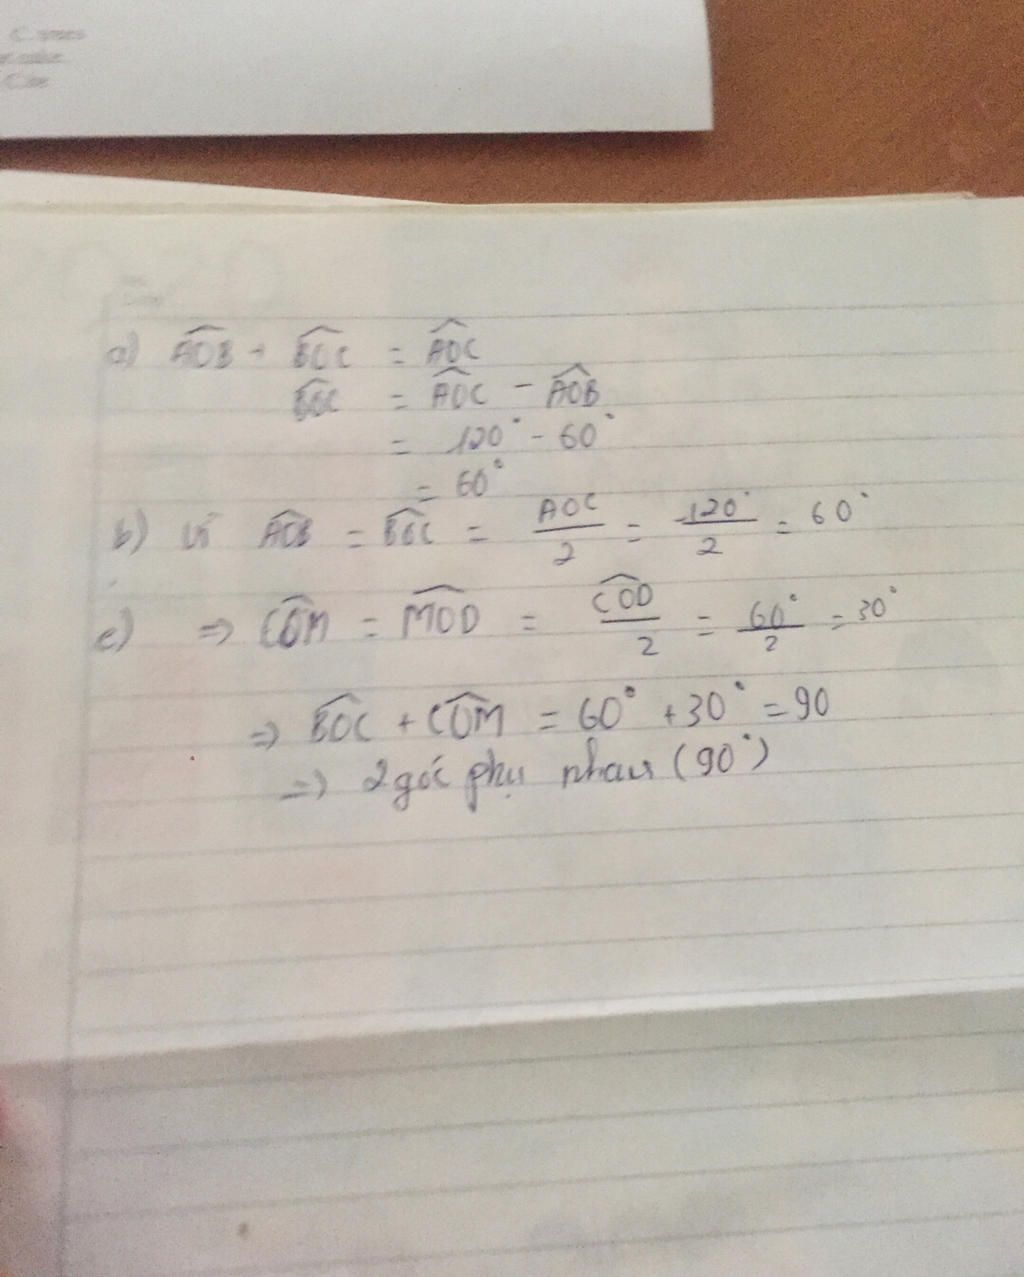 a) \widehat{AOB} + \widehat{BOC} = \widehat{AOC}
\widehat{BOC} = \widehat{AOC} - \widehat{AOB}
= 120° - 60°
= 60°
b) Vì \widehat{AOB} = \widehat{BOC} = \frac{AOC}{2} = \frac{120°}{2} = 60°
c) ⇒ \widehat{COM} = \widehat{MOD} = \frac{\widehat{COD}}{2} = \frac{60°}{2} = 30°
⇒ \widehat{BOC} + \widehat{COM} = 60° + 30° = 90
⇒ 2 góc phụ nhau (90°)